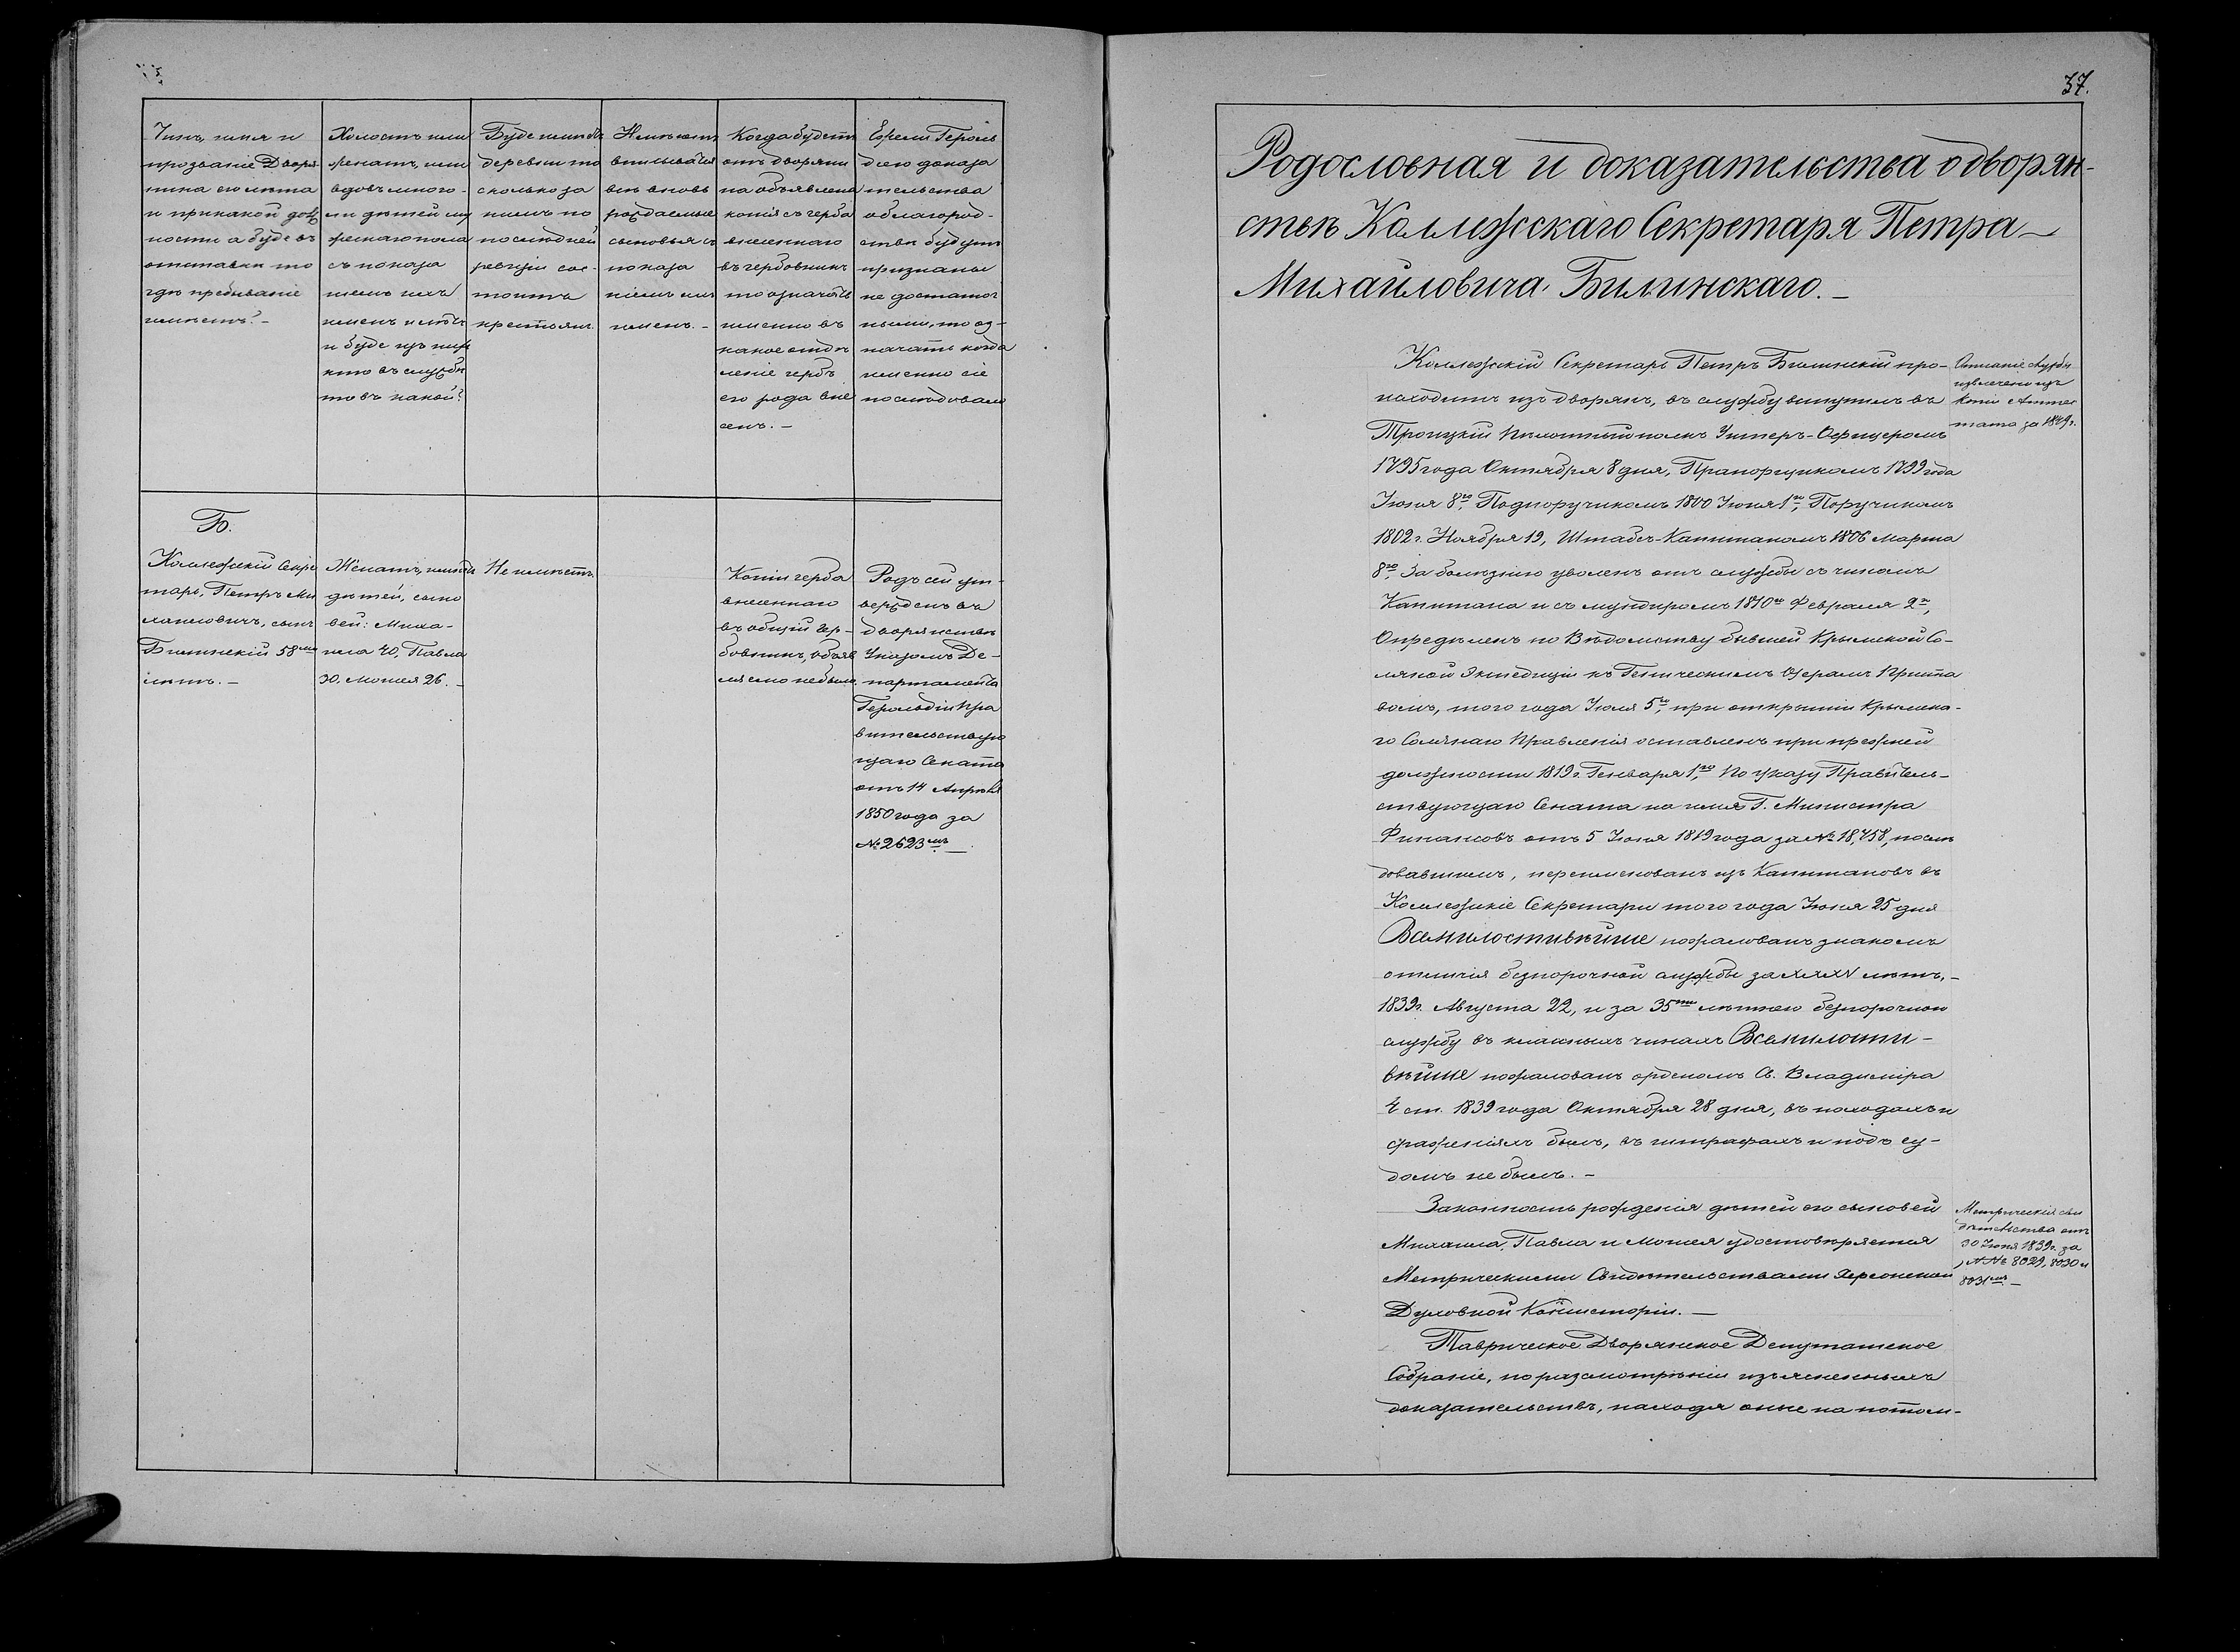 Чинъ, имя и
прозваніе Дворя
нина его лѣта
и при какой дол
ности а буде въ
отставки то
гдѣ пребываніе
имѣетъ? –
Холостъ или
женатъ, или
вдовъ много-
ли дѣтей му
жескаго пола
съ показа
ніемъ ихъ
именъ и лѣтъ
и буде изъ нихъ
кто въ службѣ
то въ какой?
Буде имѣетъ
деревни то
сколько за
нимъ по
послѣдней
ревизіи сос-
тоитъ
крестьянъ.
вписывать
внѣ вновь
рождаемые
сыновья съ
показа
ніемъ ихъ
именъ. –
Когда будетъ
отъ дворяни
на объявлена
копія съ герба
внесеннаго
въ гербовникъ
то означать
именно въ
какое отдѣ
леніе гербъ
его рода вне
сенъ. –
Ежели Героль
діею доказа
тельства
о благород-
ствѣ будутъ
признаны
не достаточ
ными, то оз-
начать когда
именно сіе
послѣдовало
Б.
Коллежскій Секре
тарь, Петръ Ми
хаиловичъ, сынъ
Билинскій 58ми
лѣтъ. –
Женатъ, имѣетъ
дѣтей, сыно
вей: Миха-
ила 40, Павла
30, Моисея 26. –
Не имѣетъ.
Копіи герба
внесеннаго
въ общій гер-
бовникъ, объяв
ляемо не было.
Родъ сей ут-
вержденъ въ
дворянствѣ
Указомъ Де-
партамента
Герольдіи Пра
вительствую
щаго Сената
отъ 14 Апрѣля
1850 года за
№ 2623мъ. –
37.
Родословная и доказательства о дворян-
ствѣ Коллежскаго Секретаря Петра –
Михайловича Билинскаго. –
Коллежскій Секретарь Петръ Билинскій про-
исходитъ изъ дворянъ, въ службу вступилъ въ
Троицкій Пѣхотный полкъ Унтеръ-Офицеромъ
1795 года Октября 8 дня, Прапорщикомъ 1799 года
Іюня 8го, Подпоручикомъ 1800 Іюня 1го, Поручикомъ
1802 г. Ноября 19, Штабсъ-Капитаномъ 1806 Марта
8го, За болѣзнію уволенъ отъ службы съ чиномъ
Капитана и съ мундиромъ 1810го Февраля 2го,
Опредѣленъ по Вѣдомству бывшей Крымской Со-
ляной Экспедиціи къ Геническимъ Озерамъ Приста
вомъ, того года Іюля 5го, при открытіи Крымска-
го Солянаго Правленія оставленъ при прежней
должности 1819 г. Генваря 1го, По указу Правитель-
ствующаго Сената на имя Г. Министра
Финансовъ отъ 5 Іюня 1819 года за № 18,758, послѣ
довавшимъ, переименованъ изъ Капитановъ въ
Коллежскіе Секретари того года Іюня 25 дня
Всемилостивѣйше пожалованъ знакомъ
отличія безпорочной службы за XXXV лѣтъ, –
1839 г. Августа 22, и за 35ти лѣтнею безпорочною
службу въ класныхъ чинахъ Всемилости-
вѣйше пожалованъ орденомъ Св. Владиміра
4 ст. 1839 года Октября 28 дня, въ походахъ и
сраженіяхъ былъ, въ штрафахъ и подъ су-
домъ не былъ. –
Законность рожденія дѣтей его сыновей
Михаила, Павла и Моисея удостовѣряется
Метрическими Свидѣтельствами Херсонской
Духовной Консисторіи. –
Таврическое Дворянское Депутатское
Собраніе, по разсмотрѣніи изъясненныхъ
доказательствъ, находя оные на потом-
Описаніе службы
извлечено изъ
Копіи Аттес
тата за 1849 г.
Метрическія сви
дѣтельства отъ
30 Іюня 1839 г. за
№№ 8029, 8030 и
8031мъ. –